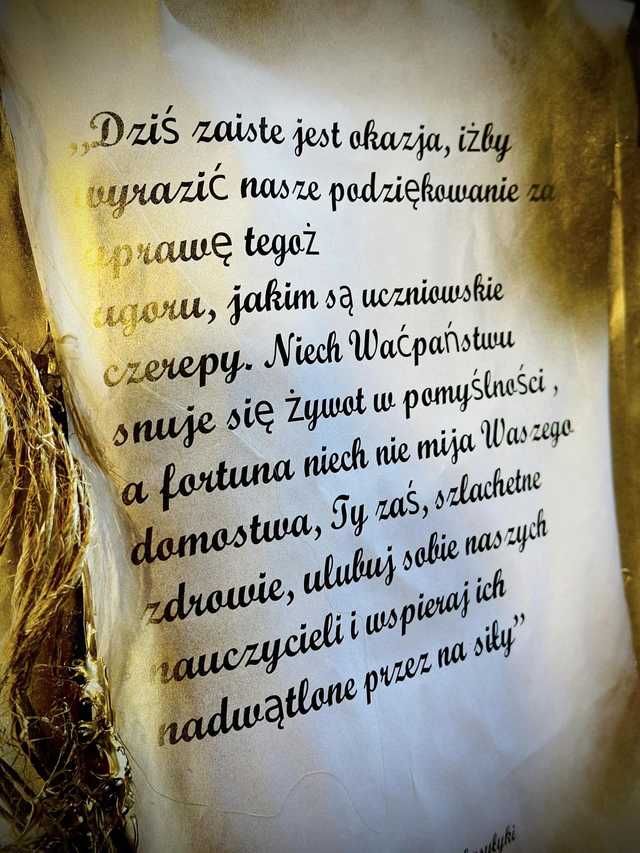 „Dziś zaiste jest okazja, iżby
wyrazić nasze podziękowanie za
uprawę tegoż
ugoru, jakim są uczniowskie
czerepy. Niech Waćpaństwu
snuje się żywot w pomyślności ,
a fortuna niech nie mija Waszego
domostwa, Ty zaś, szlachetne
zdrowie, ulubuj sobie naszych
nauczycieli i wspieraj ich
nadwątlone przez na siły”